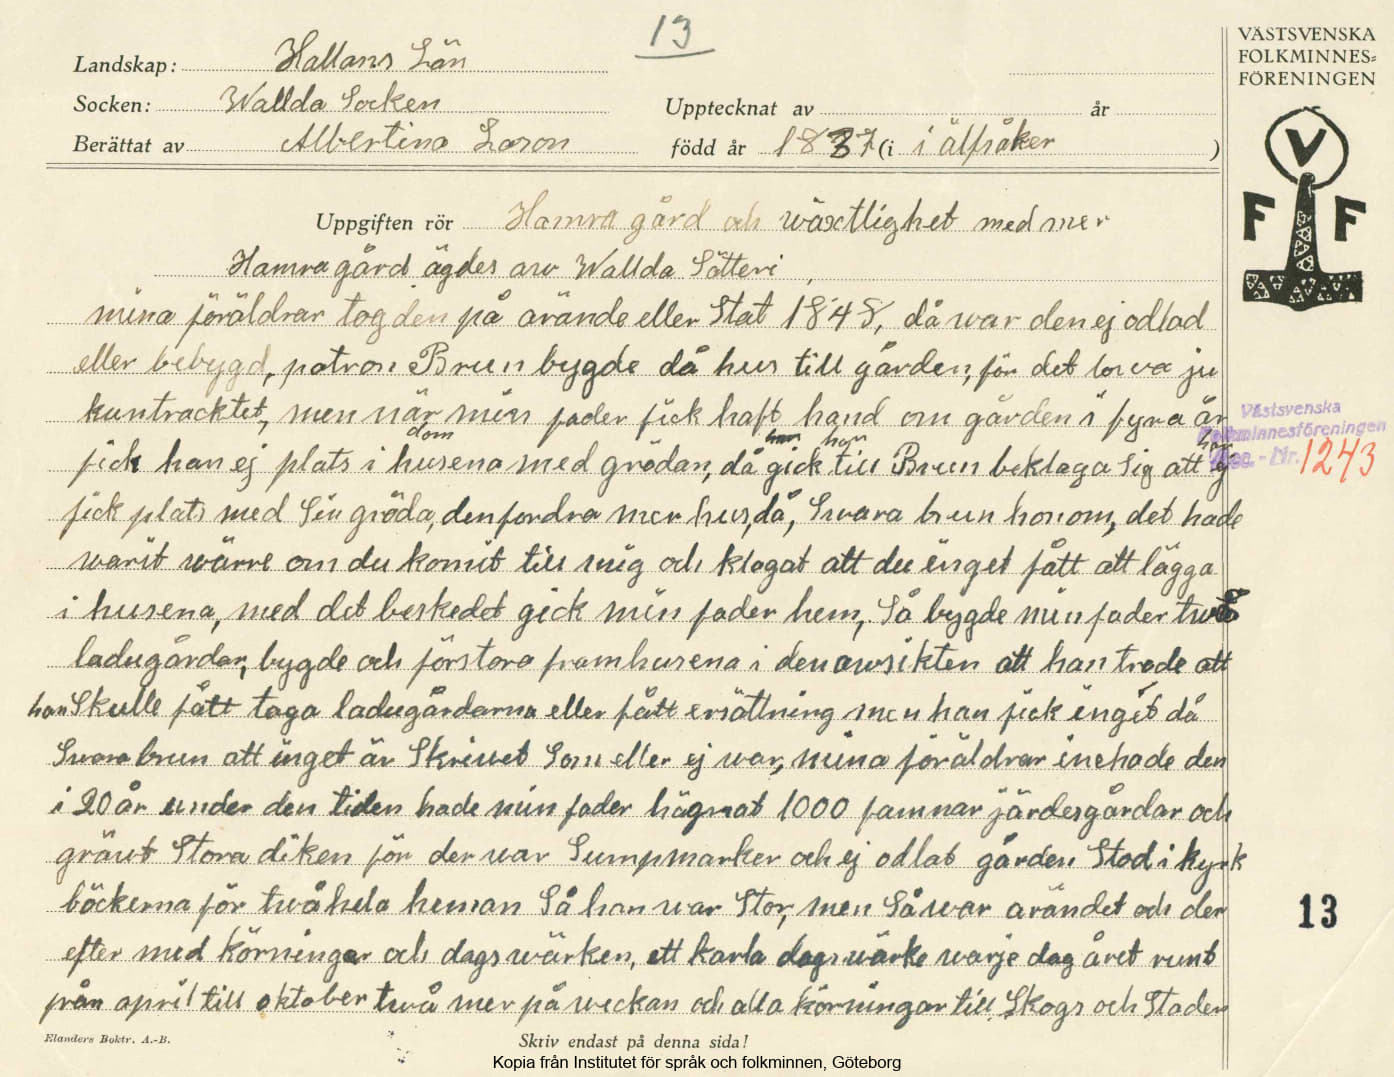 13
VÄSTSVENSKA
FOLKMINNES=
FÖRENINGEN
V
F F
Landskap: Hallans Län
Socken: Wallda Socken
Upptecknat av år
Berättat av Albertina Larson
född år 1837 (i i älfsåker )
Uppgiften rör Hamra gård och wäxtlighet med mer
Hamra gård ägdes aw Wallda Sätteri
mina föräldrar tog den på arände eller Stat 1848, då war den ej odlad
eller bebygd, patron Brun bygde då hus till gården, för det lowa ju
kuntracktet, men när min fader fick haft hand om gården i fyra år
fick han ej plats i husena med grödan, då gick han till Brun beklaga Sig att han ej
dom
fick plats med Sin gröda, den fordra mer hus, då, Swara brun honom, det hade
warit wärre om du komit till mig och klagat att du inget fått att lägga
i husena, med det beskedet gick min fader hem, Så bygde min fader twå
ladugårdar, bygde och förstora framhusena i den awsikten att han trode att
han Skulle fått taga ladugårdarna eller fått ersättning men han fick inget då
Swara brun att inget är Skriwet Som eller ej war, mina föräldrar inehade den
i 20 år under den tiden hade min fader hägnat 1000 famnar järdesgårdar och
gräwt Stora diken för der war Sumpmarker och ej odlat gården Stod i kyrk
böckerna för twå hela heman Så han war Stor, men Så war arändet och der
efter med körningar och dagswärken, ett karla dagswärke warje dag året runt
från april till oktober twå mer på weckan och alla körningar till Skogs och Staden
Västsvenska
Folkminnesföreningen
Acc.-Nr. 1243
13
Elanders Boktr. A.-B.
Skriv endast på denna sida!
Kopia från Institutet för språk och folkminnen, Göteborg